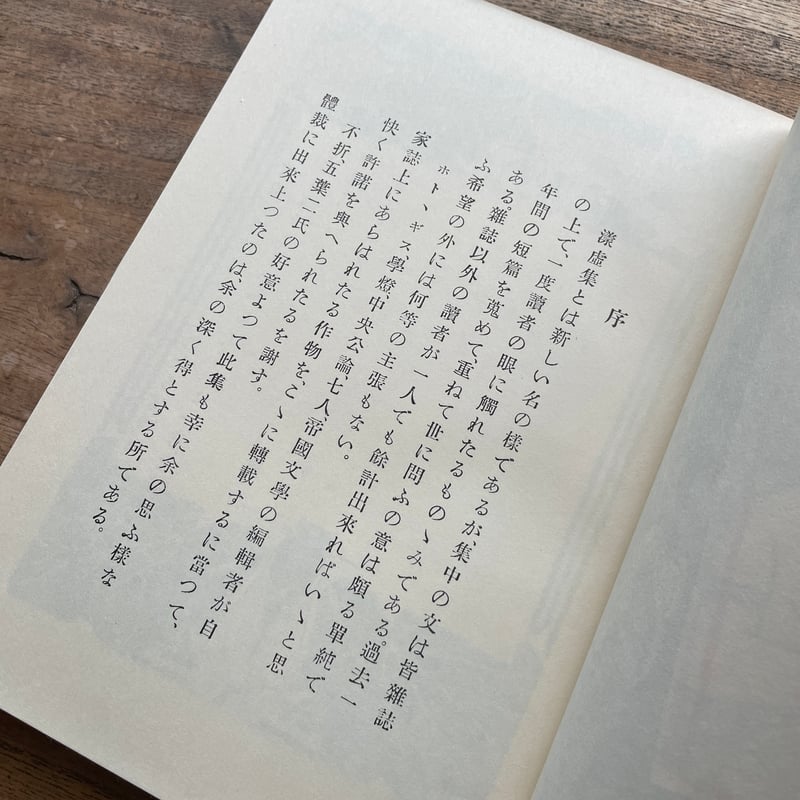 序
漾虛集とは新しい名の樣であるが、集中の文は皆雜誌
の上で、一度讀者の眼に觸れたるものゝみである。過去一
年間の短篇を蒐めて、重ねて世に問ふの意は頗る單純で
ある。雜誌以外の讀者が一人でも餘計出來ればいゝと思
ふ希望の外には何等の主張もない。
ホトヽギス、學燈、中央公論、七人、帝國文學の編輯者が自
家誌上にあらはれたる作物を、こゝに轉載するに當つて、
快く許諾を與へられたるを謝す。
不折、五葉二氏の好意よつて此集も幸に余の思ふ樣な
體裁に出來上つたのは、余の深く得とする所である。